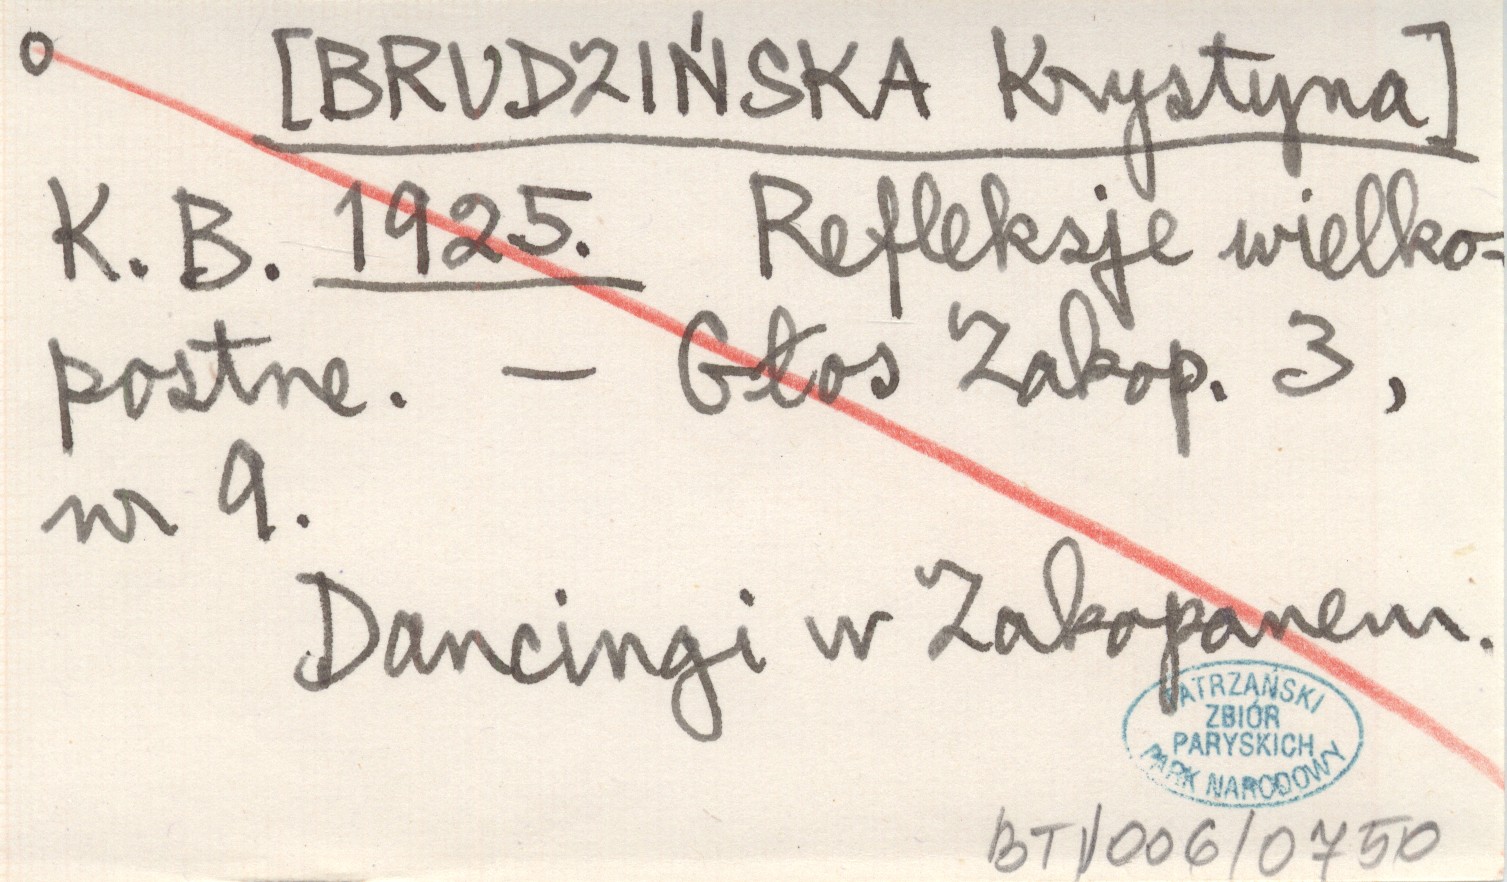 o [BRUDZIŃSKA Krystyna]
K. B. 1925. Refleksje wielko-
postne. — Głos Zakop. 3,
nr 9.
Dancingi w Zakopanem.
TATRZAŃSKI
ZBIÓR
PARYSKICH
PARK NARODOWY
BT1/006/0750